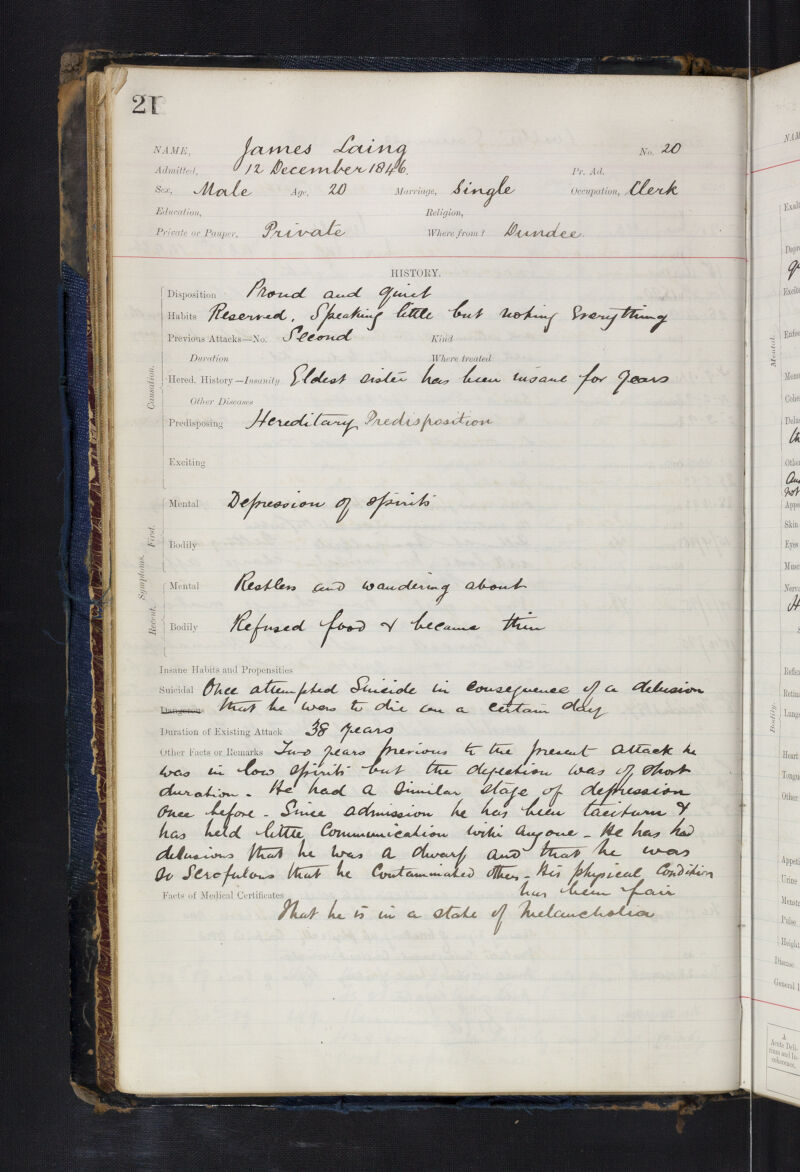 21
NAME, James Laing No. 20
Admitted, 12 December 1846. Pr. Ad.
Sex, Male Age, 20 Marriage, Single Occupation, Clerk
Education, Religion,
Private or Pauper, Private Where from? Dundee
HISTORY.
Disposition Proud and quiet
Habits Reserved. Speaking little but noting Everything
Previous Attacks—No. Second Kind
Duration Where treated
Hered. History—Insanity Eldest sister has been insane for years
Other Diseases
Predisposing Hereditary Predisposition
Causation.
Exciting
Mental Depression of spirits
First.
Bodily
Symptoms.
Mental Restless and wandering about
Recent.
Bodily Refused food & became thin
Insane Habits and Propensities
Suicidal Once attempted Suicide in consequence of a delusion
Dangerous that he was to die on a certain day
Duration of Existing Attack 38 years
Other Facts or Remarks Two years previous to the present attack he
was in low spirits but the dejection was of short
duration - He had a similar stage of depression
once before - Since admission he has been taciturn &
has held little Communication with anyone - He has had
delusions that he was a dwarf and that he was
so Scrofulous that he Contaminated others - His physical Condition
has been fair
Facts of Medical Certificates
That he is in a state of Melancholia
NAM
Exalt
Depre
Excite
Enfee
Mental.
Mem
Cohe
Delus
Other
not
Appe
Skin
Eyes
Musc
Nerv
Reflex
Retin
Lungs
Bodily.
Heart
Tongu
Other
Appeti
Urine
Menstr
Pulse
Height
Disease
General
A
Acute Deli-
rium and In-
coherence.